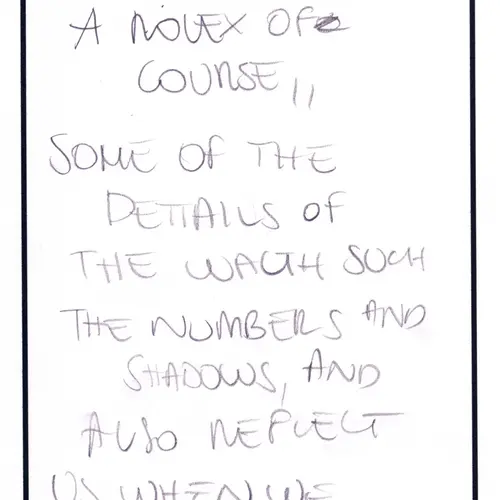 A ROLEX OF
COURSE,,
SOME OF THE
DETTAILS OF
THE WACTH SUCH
THE NUMBERS AND
SHADOWS, AND
ALSO REFLECT
US WHEN WE